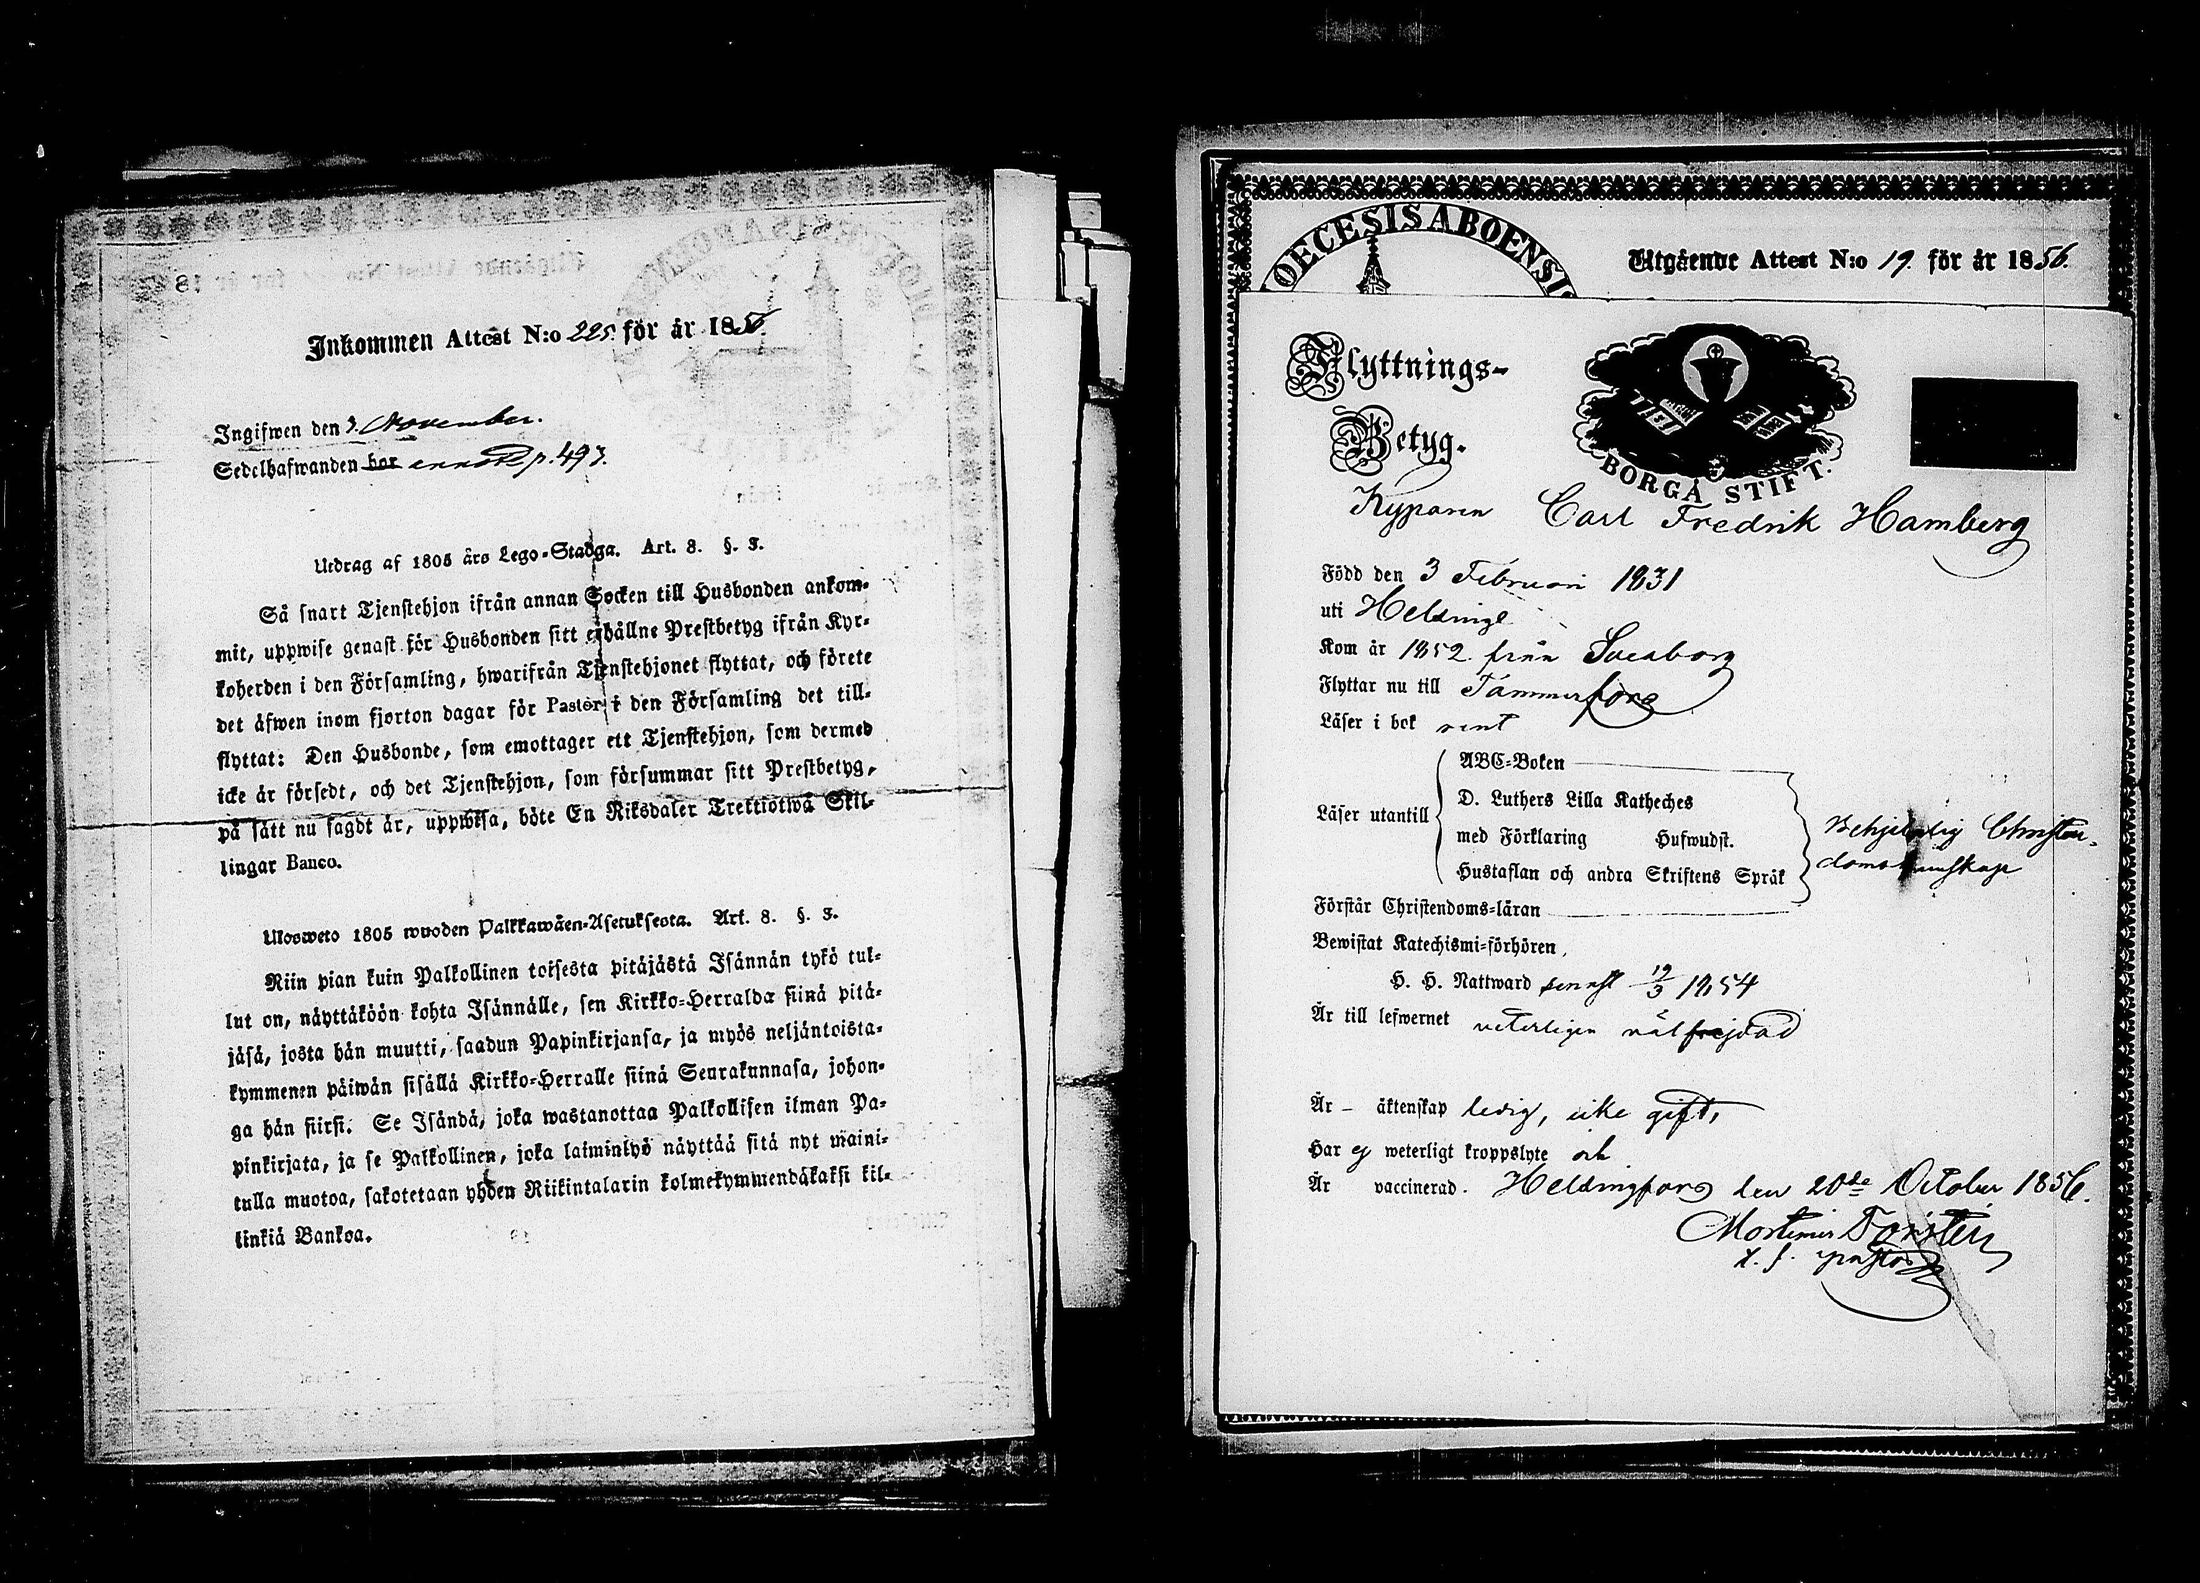 Inkommen Attest N:o 225. för år 1856.
Ingifwen den 3. November.
Sedelhafwanden bor annot. p. 493.
Utdrag af 1805 års Lego-Stadga. Art. 8. §. 3.
Så snart Tjenstehjon ifrån annan Socken till Husbonden ankom-
mit, uppwise genast för Husbonden sitt erhållne Prestbetyg ifrån Kyr-
koherden i den Församling, hwarifrån Tjenstehjonet flyttat, och förete
det äfwen inom fjorton dagar för Pastor i den Församling det till-
flyttat: Den Husbonde, som emottager ett Tjenstehjon, som dermed
icke är försedt, och det Tjenstehjon, som försummar sitt Prestbetyg,
på sätt nu sagdt är, uppwisa, böte En Riksdaler Trettiotwå Skil-
lingar Banco.
Ulosweto 1805 wuoden Palkkawäen-Asetuksesta. Art. 8. §. 3.
Niin pian kuin Palkollinen toisesta pitäjästä Isännän tykö tul-
lut on, näyttäköön kohta Isännälle, sen Kirkko-Herralda siinä pitä-
jäsä, josta hän muutti, saadun Papinkirjansa, ja myös neljäntoista-
kymmenen päiwän sisällä Kirkko-Herralle siinä Seurakunnasa, johon-
ga hän siirsi. Se Isändä, joka wastanottaa Palkollisen ilman Pa-
pinkirjata, ja se Palkollinen, joka laiminlyö näyttää sitä nyt maini-
tulla muotoa, sakotetaan yhden Riikintalarin kolmekymmendäkaksi kil-
linkiä Bankoa.
OECESIS ABOENSI
Utgående Attest N:o 19. för år 1856.
Flyttnings-
Betyg.
BORGÅ STIFT.
Kyparen Carl Fredrik Hamberg
Född den 3 Februari 1831
uti Helsingf.
Kom år 1852. från Sveaborg
Flyttar nu till Tammerfors
Läser i bok rent
ABC-Boken
D. Luthers Lilla Katheches
Läser utantill
med Förklaring Hufwudst.
Hustaflan och andra Skriftens Språk
Behjelplig Christen-
domskunskap
Förstår Christendoms-läran
Bewistat Katechismi-förhören,
H. H. Nattward sennst 19/3 1854
Är till lefwernet veterligen välfrejdad
Är – äktenskap ledig, icke gift,
Har ej weterligt kroppslyte och
Är vaccinerad. Helsingfors den 20de October 1856.
Mortimer Forstén
t. f. pastor